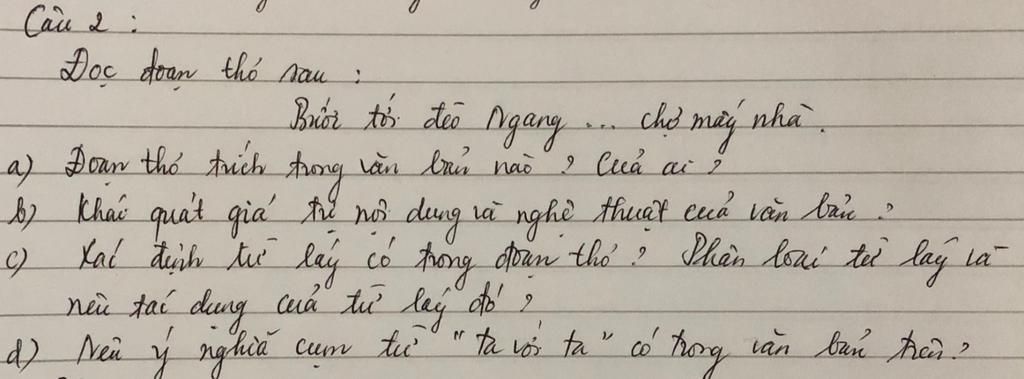 Câu 2 :
Đọc đoạn thơ sau :
Bước tới đèo Ngang ... chợ mấy nhà.
a) Đoạn thơ trích trong văn bản nào ? Của ai ?
b) Khái quát giá trị nội dung và nghệ thuật của văn bản ?
c) Xác định từ láy có trong đoạn thơ ? Phân loại từ láy và
nêu tác dụng của từ láy đó ?
d) Nêu ý nghĩa cụm từ "ta với ta" có trong văn bản trên ?